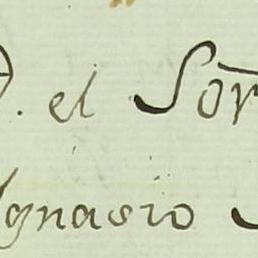 el Sor
Ignacio